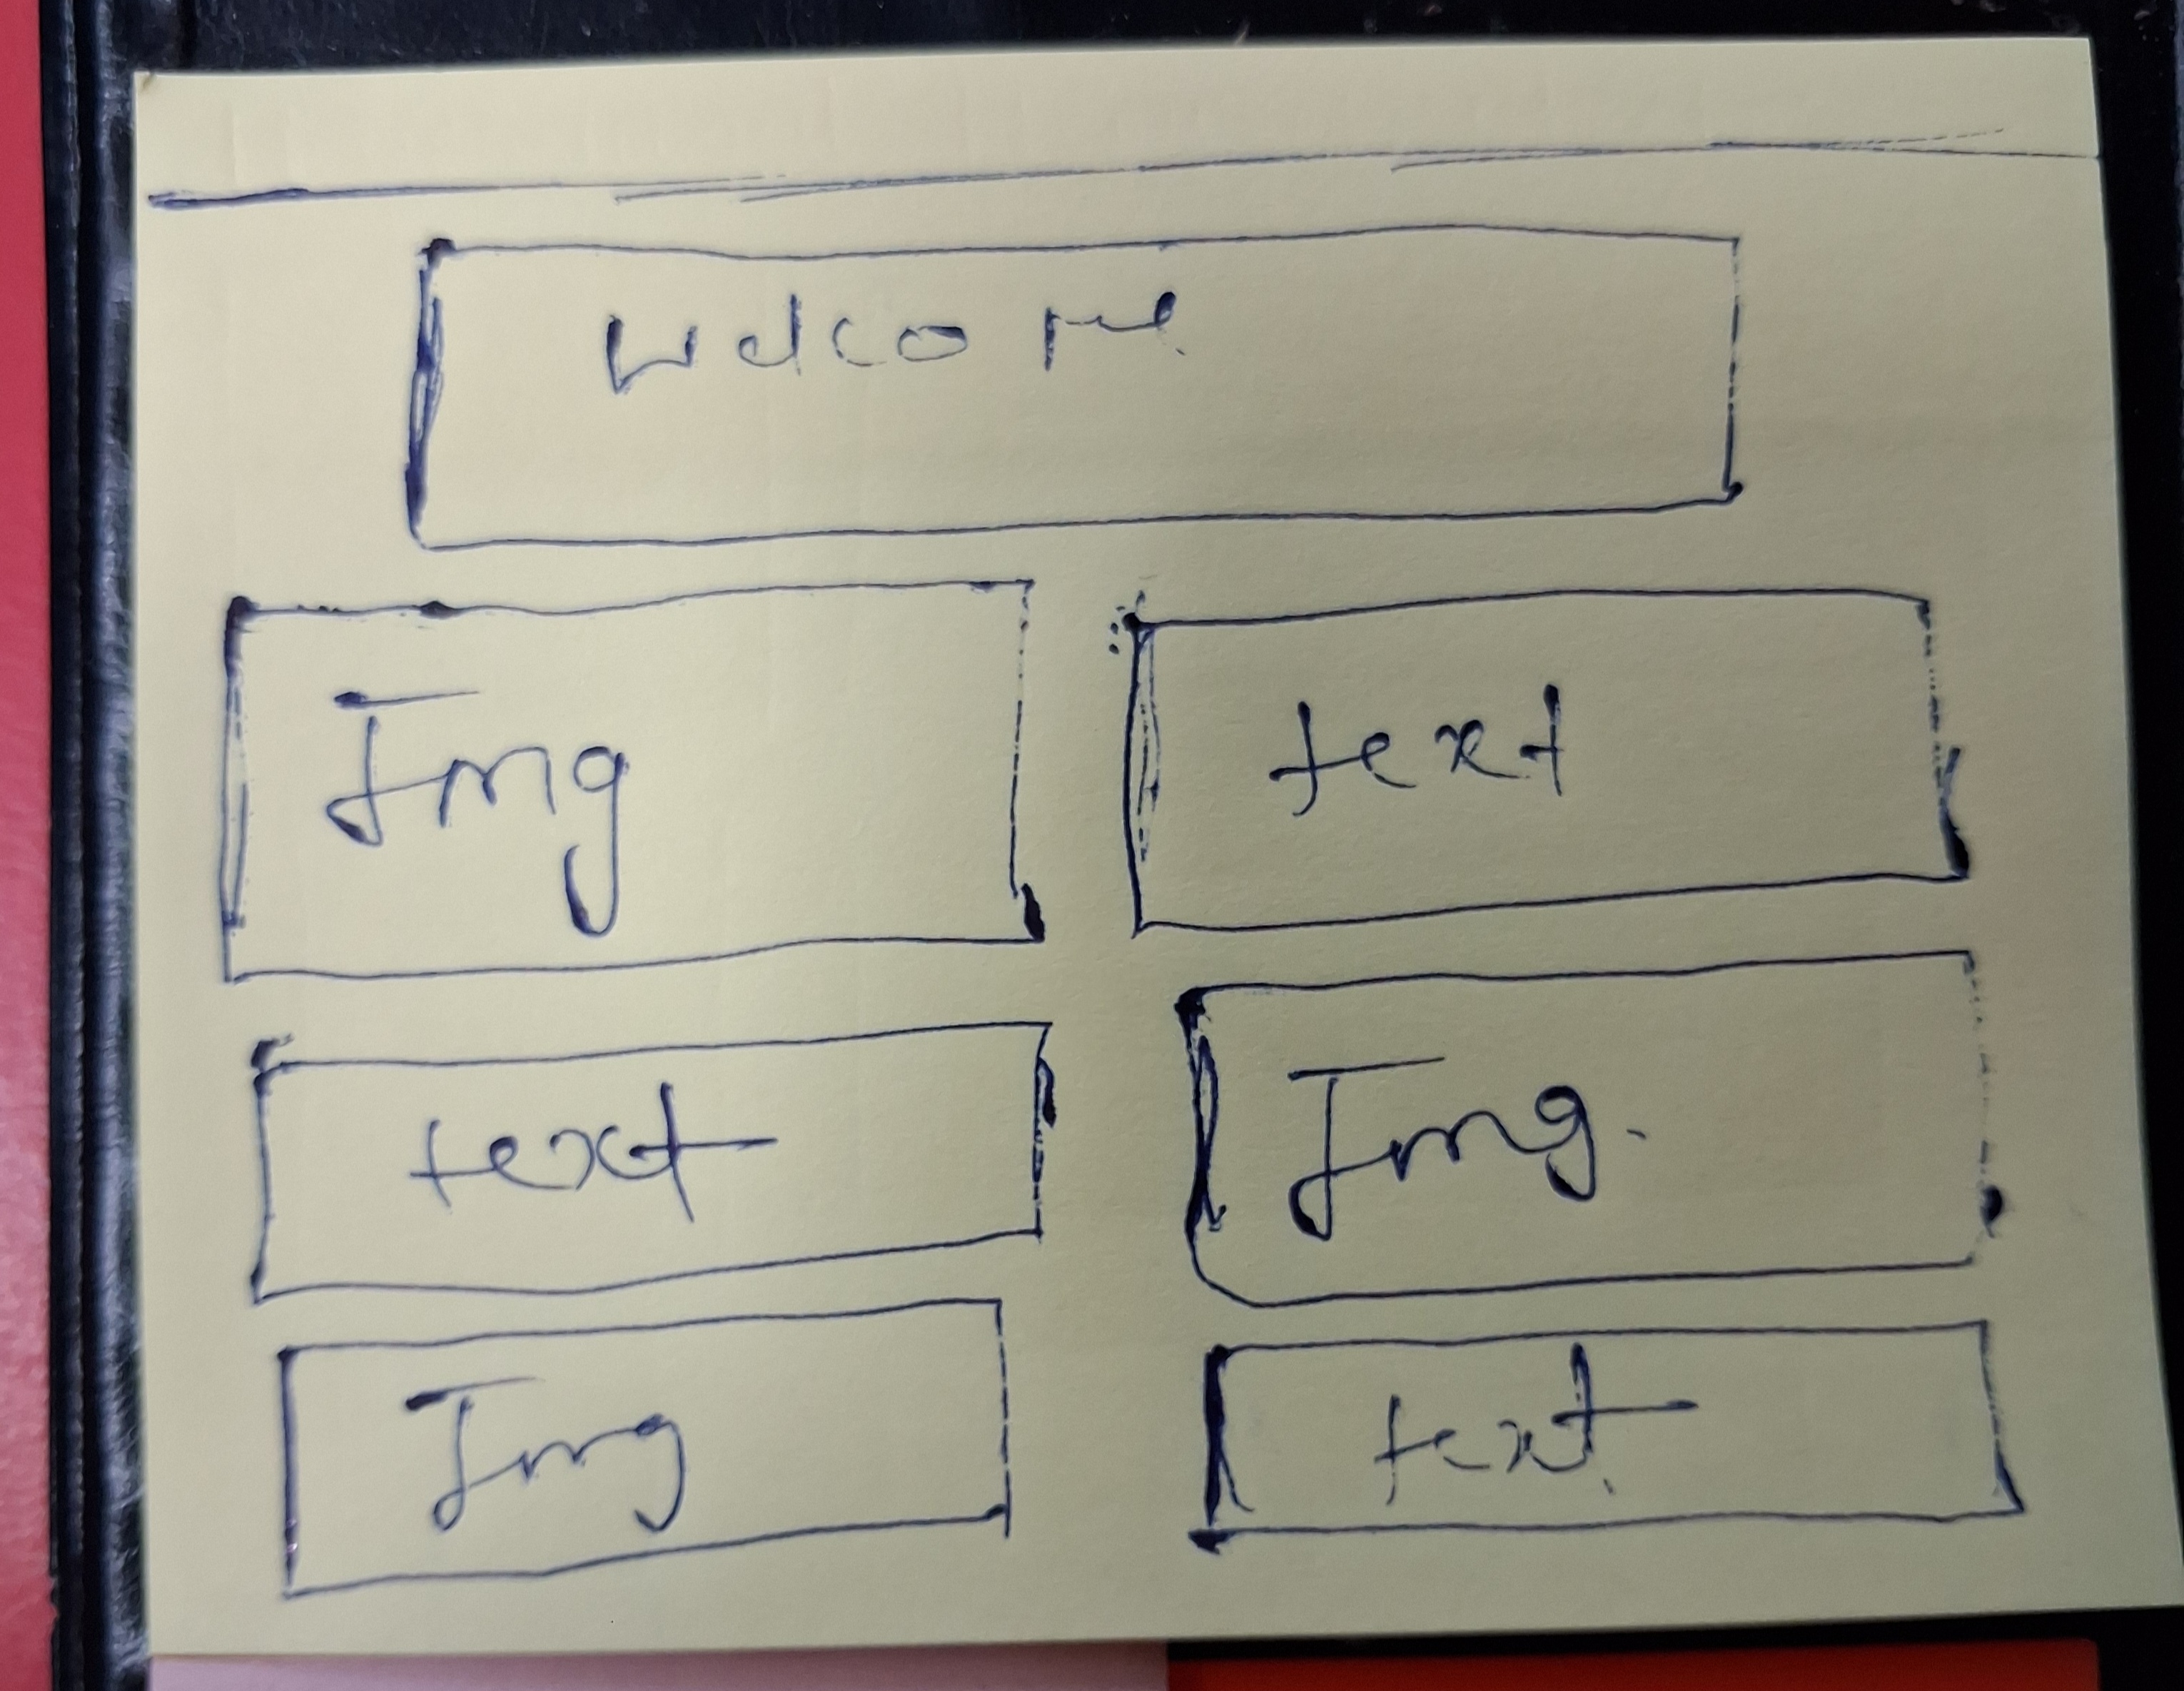 Welcome
Img
text
text
Img.
Img
text